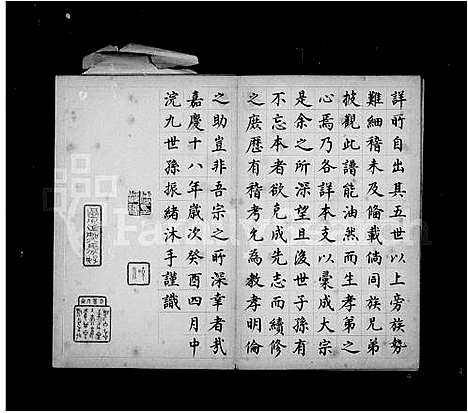 詳所自出其五世以上旁族勢
難細稽未及俻載倘同族兄弟
披觀此譜能油然而生孝弟之
心焉乃各詳本支以彚成大宗
是余之所深望且後世子孫有
不忘本者欲克成先志而續修
之庶歷有稽考允為教孝明倫
之助豈非吾宗之所深幸者哉
嘉慶十八年歲次癸酉四月中
浣九世孫振緒沐手謹識